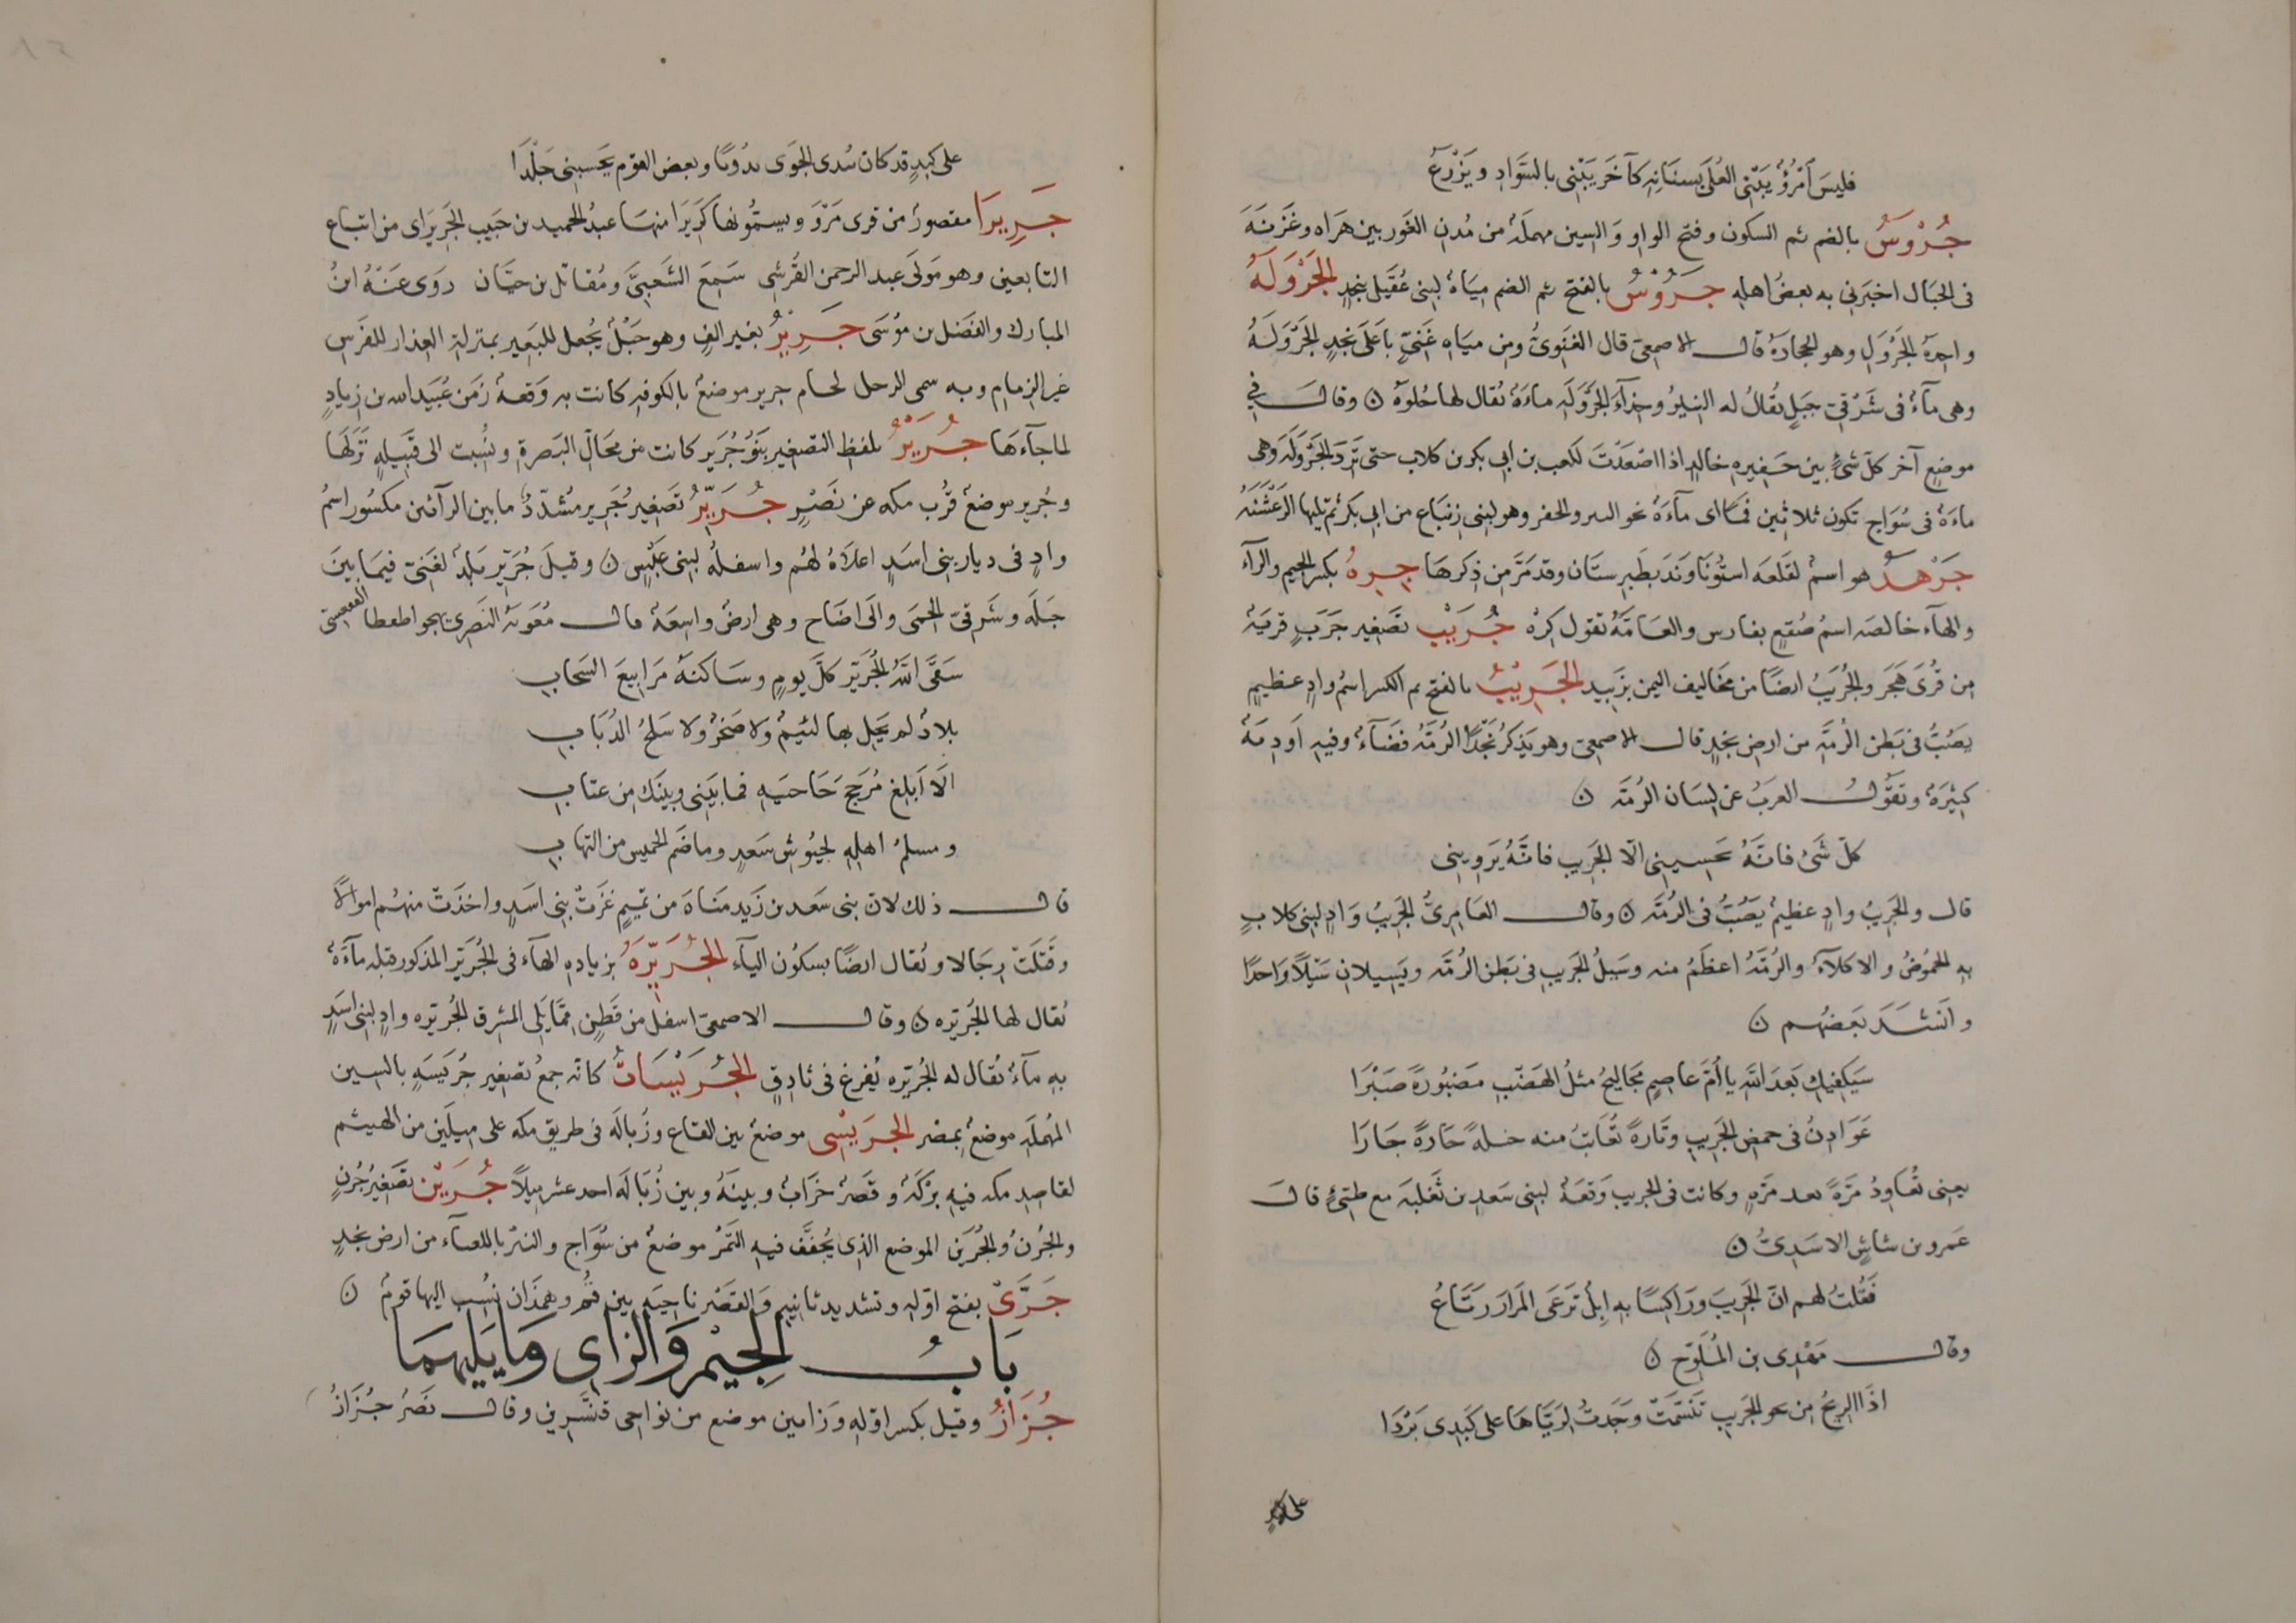 فليسَ امْرُؤٌ يَبْتَنِى العُلَى بسنَانِهِ كآخَرَ يَبْتَنِى بالسَّوَادِ ويَزْرَعُ
جُرْوَسُ بالضم ثم السكون وفتح الواو وَالسين مهملَة من مُدن الغَور بين هَرَاه وغَزنَهَ
فى الجبَال اخبَرنى به بعضُ اهلهِ جَرُوْسُ بالفتح ثم الضم ميَاهٌ لبنى عُقَيل بنجدٍ الجَرْوَلَةُ
واحِدَة الجَرْوَلِ وهو الحجارَةُ قال الاصمعىّ قال الغَنَوىُّ ومِن ميَاهِ غَنىّ بَاعلَى نجدٍ الجَرْوَلَةُ
وهى مآءٌ فى شَرْقىِّ جَبَلٍ يُقالُ له النيرُ وحِذآءَ الجَرْوَلَةِ ماءَةٌ يُقال لها حُلوَةُ ٥ وقالَ فى
موضعٍ آخر كلّ شىٍٔ بين حَفيرةِ خالدٍ اذا اصْعَدْتَ لكعب بن ابى بكر بن كلاب حتى تَرِدَ الجَرْوَلَةَ وَهى
ماءَةٌ فى سُوَاجٍ تكون ثلاثين فمًا اى مآءَةً نحو البير والحفر وهو لبنى زِنبَاع من ابى بكر ثم يليها الرَعْشَنَهُ
جَرْهَدُ هو اسمٌ لقَلعَه استُونَاوَنَد بطَبرستَان وقد مَرَّ من ذِكرهَا جِرهُ بكسر الجيم والرآء
والهآء خالصَه اسمُ صُقعٍ بفارس والعَامَّةُ تقول كِرْه جُرَيْب تصغير جَرَبٍ قريَةٌ
مِن قُرَى هَجَر والجُرَيبُ ايضًا من مخاليف اليمن بزَبيد الجَرِيْبُ بالفتح ثم الكسر اسمُ وادٍ عظيمٍ
يَصُبُّ فى بَطن الرُمَّه من ارض نجدٍ قال الاصمعىّ وهو يَذكرُ نَجْدًا الرُمَّهُ فضَآءٌ وفيهِ اَودِيَةٌ
كَثيْرَةٌ وتَقُولُ العربُ عن لِسَان الرُمَّه ٥
كلّ شَىٔ فانَّهُ يحسِينِى الّا الجَرِيب فانَّهُ يَروِينِى
قال والجَرِيبُ وادٍ عظيمٌ يَصُبُّ فى الرُمَّه ٥ وقال العَامِرِىُّ الجَرِيبُ وَادٍ لبنى كلابٍ
بهِ الحُمُوضُ والاكلآءُ والرُمَّهُ اعظَمُ منه وسَيلُ الجَرِيب فى بَطن الرُمَّه ويَسِيلان سَيْلًا وَاحدًا
وانَشدَ بَعضُهم ٥
سَيَكفِيكِ بَعدَ اللهِ يا اُمَّ عَاصمٍ مجَاليحُ مثلُ الهَضْب مَصْبُورةً صَبْرَا
عَوَادِنُ فى حمض الجَرِيب وتَارةً تُعَاتِبُ منه خلةً جَارةً جَارَا
يعنى تُعَاوِدُ مَرّةً بعد مَرّةٍ وكانت فى الجريب وَقعَةٌ لبنى سَعد بن ثَعْلَبَة مع طيّئ قالَ
عَمرو بن شاسٍ الاسَدِىُّ ٥
فَقُلتُ لهم انّ الجَريبَ ورَاكسًا بهِ اِبِلٌ تَرعَى المرَارَ رَتَّاعُ
وقال مَهْدِى بن المُلَوّح ٥
اذَا الريحُ مِن نحو الجَرِيب تَنَسَّمَتْ وجَدتُ لرَيَّاهَا على كَبِدى بَرْدَا
على كبدٍ
على كبدٍ قد كان يُبدى الجَوَى نُدُوبًا وبعض القوم يَحسِبنى جَلْدَا
جَرِيرَا مقصورٌ من قرى مَرْوَ ويسمُّونها كَرِيرَا منهَا عبدُ الحميد بن حَبيب الجَرِيرَاى من اتباع
التابعين وهو مَولَى عبد الرحمن القُرشى سَمِعَ الشَعبِىَّ ومُقاتل بن حيَّان روَى عَنْهُ ابنُ
المبارك والفَضل بن مُوسَى جَرِيْرُ بغير الفٍ وهو حَبْلٌ يُجعل للبَعير بمنزلة العذار للفَرس
غير الزمام وبه سمى الرجل لحام جرير موضعٌ بالكوفه كانت به وَقعةٌ زمَن عُبَيد الله بن زيادٍ
لما جآءهَا جُرَيْرُ بلفظ التصغير بَنُو جُرَير كانت من مَحَالّ البَصرة ونُسبت الى قَبيلةٍ نَزَلَهَا
وجُرير موضعٌ قُرب مكه عن نَصْرٍ جُرَيِّرُ تصغير جَرير مشَدّدٌ ما بين الرآئين مكسُور اسمُ
وادٍ فى ديار بنى اسَدٍ اعلَاهُ لهُم واسفلُه لبنى عَبْسٍ ٥ وقيلَ جُرَيِّر بَلَدٌ لغَنىّ فيمَا بينَ
جَبَلَه وشَرقىّ الحِمَى والَى اضَاح وهى ارضٌ واسعَةٌ قال مُعَويَه النَصْرىّ يهجوا طعطا الفقعسىّ
سَقَى اللهُ الجُرَيِّر كلّ يومٍ وسَاكنَهُ مَرَابيعَ السَحَابِ
بلادٌ لم يَحِلّ بها لئيمٌ ولا صَخرٌ ولا سَلَحُ الذُبَابِ
الَا اَبلِغ مُزَجّحَ حَاجبَيهِ فما بَينى وبينَك مِن عتابِ
ومسلمٌ اهلهِ لجيُوش سَعدٍ وما ضَمَّ الخميس من النهابِ
قال ذلك لانّ بنى سَعد بن زَيد مَنَاة من تَميمٍ غزَتْ بنى اسَدٍ واخذَتْ منهُم اموالًا
وقَتَلَت رِجَالا ويُقال ايضًا بسكُون اليآء الجُرَيِّرَةُ بزيادةِ الهآء فى الجُرَيِّر المذكور قبلهِ مآءَةٌ
يُقال لها الجُرَيِّره ٥ وقال الاصمعىّ اسفل من قَطَنٍ مِمَّا يَلِى المشرق الجُرَيِّره وادٍ لبنى اسَدٍ
بهِ مآءٌ يُقال له الجُرَيِّره يُفرغ فى ثادِقٍ الجُرَيْسَاتُ كانّه جمعُ تصغير جَرْيَسَهٍ بالسين
المُهمَلَهِ موضعٌ بمصْر الجُرَيْسِى موضعٌ بين القاع وزُبالَه فى طريق مكه على ميلَين من الهيثم
لقاصِدِ مكه فيهِ بَرْكَهٌ وقَصرٌ خرَابٌ وبينَهُ وبين زُبَالَه احد عشر ميلًا جُرَيْن تَصغيرُ جُرنٍ
والجُرنُ والجُرَين الموضع الذِى يُجَفَّف فيهِ التَمْرُ موضعٌ من سُوَاج والنيْر باللعبآء من ارض نجدٍ
جَرَّى بفتح اوّلهِ وتشديد ثانيهِ وَالقصْر ناحيَه بين قُم وهمذَان نُسِب اليها قومٌ ٥
بَابُ الجِيْمِ وَالزاىِ وَمَا يَلِيهمَا
جُزَازُ وقيل بكسر اوّله وزَاءين موضع من نواحى قنّسرِين وقال نَصْر جُزَازُ